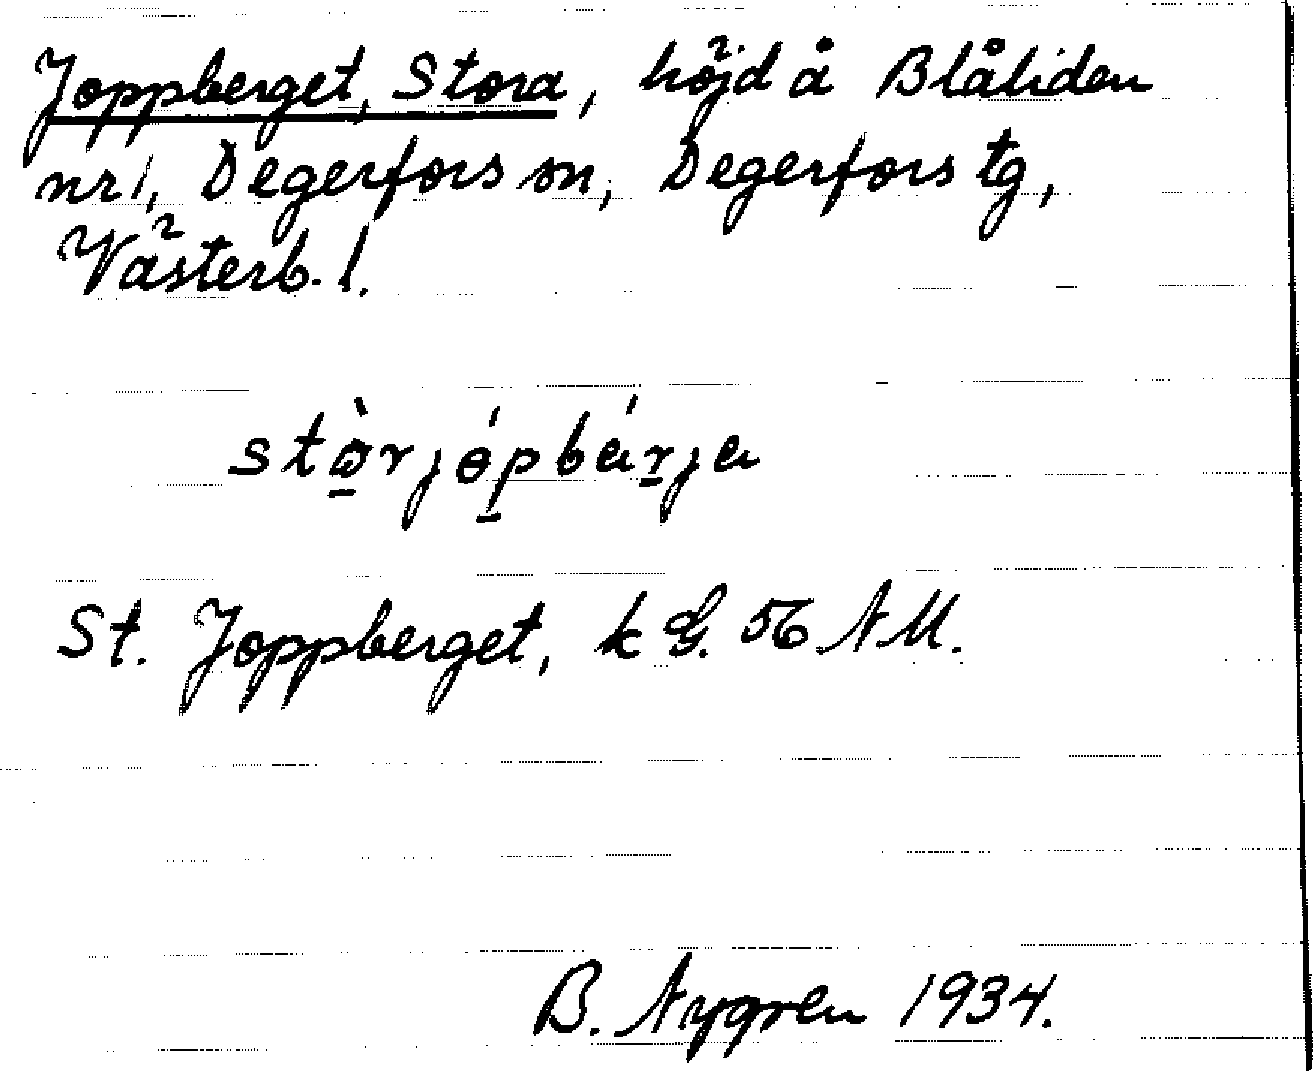 Joppberget, Stora, höjd å Blåliden
nr 1, Degerfors sn, Degerfors tg,
Västerb. l.
stò̱rjǿp̱báṟja
St. Joppberget, k G. 56 NM.
B. Nygren 1934.